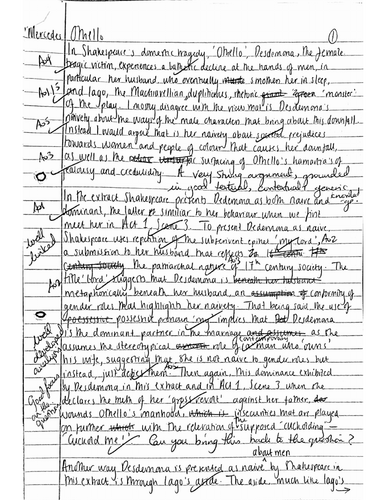 "Mercedes Othello ①
In Shakespeare's domestic tragedy, 'Othello', Desdemona, the female
AO1 tragic victim, experiences a decline at the hands of men, in
particular her husband who eventually smothers her in sleep,
AO1/5 and Iago, the Machiavellian, duplicitous, 'monster'
of the play. I mostly disagree with the view that is Desdemona's
AO5 naivety about the ways of the male characters that bring about this downfall.
Instead I would argue that is her naivety about prejudices
AO3 towards women and people of colour that causes her downfall,
as well as the surfacing of Othello's hamartia's of
jealousy and credulity. A very strong argument, grounded
in good textual, contextual, generic
AO1 In the extract Shakespeare presents Desdemona as both naive and
dominant, the latter similar to her behaviour when we first
well linked meet her in Act 1, Scene 3. To present Desdemona as naive,
Shakespeare uses repetition of the subservient epithet 'my lord', AO2
a submission to her husband that reflects
the patriarchal nature of 17th century society. The
AO3 title 'Lord' suggests that Desdemona is
metaphorically beneath her husband, an conformity of
gender roles that highlights her naivety. That being said the use of
possessive pronoun 'my' implies that Desdemona
well developed is the dominant partner in the marriage as she
assumes the stereotypical contemporary role of man who 'owns'
his wife, suggesting that she is not naive to gender roles but
instead, just defies them. Then again, this dominance exhibited
Good focus on the question by Desdemona in this extract and in Act 1 Scene 3 when she
declares the of her 'gross revolt' against her father,
wounds Othello's manhood, insecurities that are played
on further with the revelation of the supposed 'cuckolding' –
'Cuckold me!' Can you bring this back to the question?
about men
Another way Desdemona is presented as naive by Shakespeare in
this extract is through Iago's aside. The aside, much like Iago's